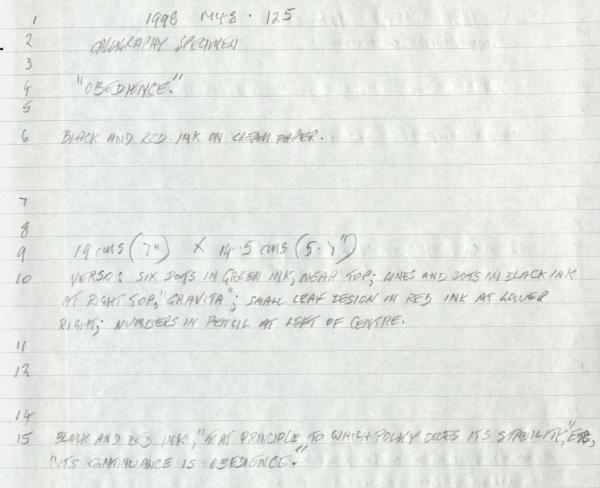 1 1998 M48 . 125
2 CALIGRAPHY SPECIMEN
3
4 "OBEDIENCE."
5
6 BLACK AND RED INK ON CREAM PAPER.
7
8
9 19 cms (7") X 14.5 cms (5. ")
10 VERSO: SIX DOTS IN GREEN INK, NEAR TOP; LINES AND DOTS IN BLACK INK
AT RIGHT TOP, "GRAVITA"; SMALL LEAF DESIGN IN RED INK AT LOWER
RIGHT; NUMBERS IN PENCIL AT LEFT OF CENTRE.
11
12
14
15 BLACK AND RED INK, "THAT PRINCIPLE TO WHICH POLICY OWES ITS STABILITY," ETC,
"ITS CONTINUANCE IS OBEDIENCE."